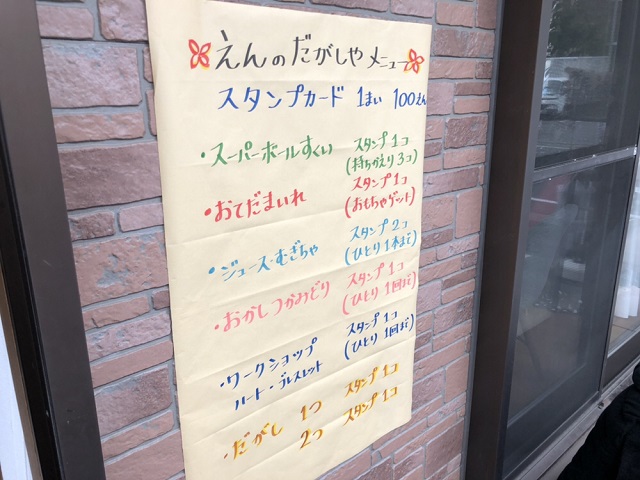 えんのだがしやメニュー
スタンプカード 1まい 100えん
・スーパーボールすくい スタンプ1コ
(持ちかえり3コ)
・おてだまいれ スタンプ1コ
(おもちゃゲット)
・ジュース むぎちゃ スタンプ2コ
(ひとり1本まで)
・おかしつかみどり スタンプ1コ
(ひとり1回まで)
・ワークショップ スタンプ1コ
ハート・ブレスレット (ひとり1回まで)
・だがし 1つ スタンプ1コ
2つ スタンプ1コ